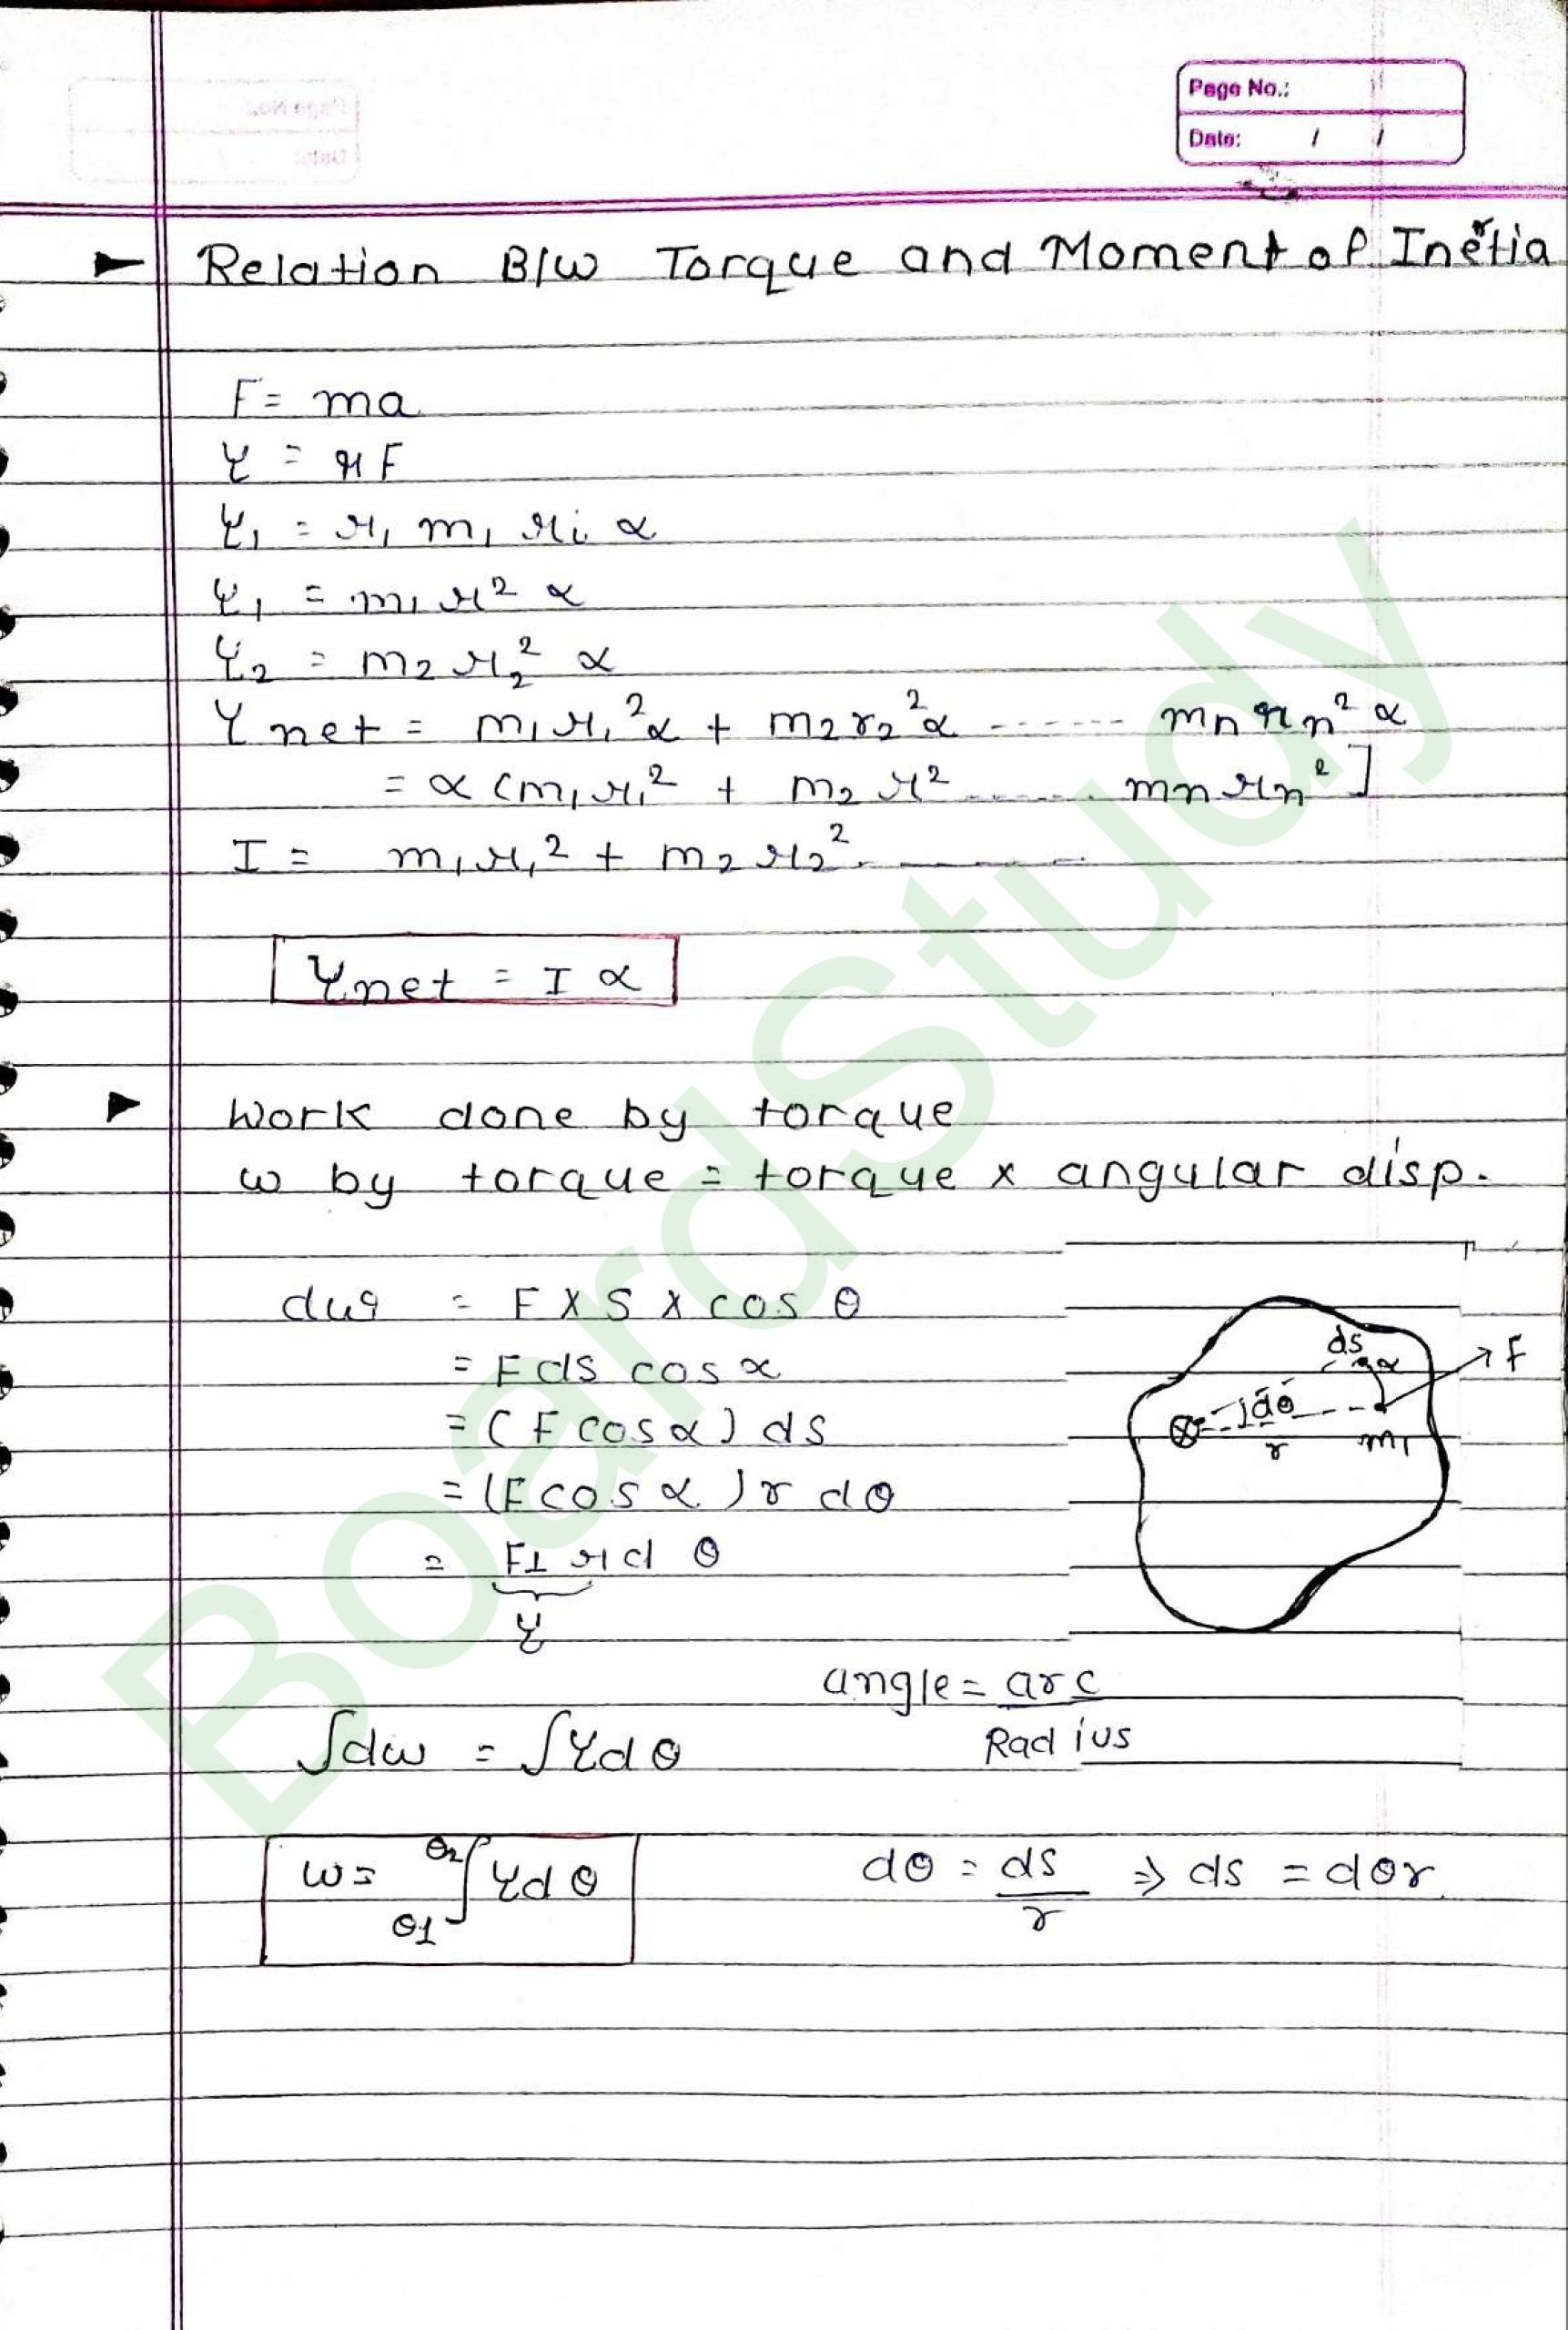 Page No.:
Date: / /
► Relation B/W Torque and Moment of Inertia
F = ma
τ = rF
τ₁ = r₁ m₁ r₁ α
τ₁ = m₁ r² α
τ₂ = m₂ r₂² α
τ net = m₁ r₁² α + m₂ r₂² α ------ mn rn² α
= α (m₁ r₁² + m₂ r² ...... mn rn² ]
I = m₁ r₁² + m₂ r₂² ---------
τnet = I α
► Work done by torque
ω by torque = torque x angular disp.
dω = F X S X cos θ
= F ds cos α
= (F cos α) ds
= (F cos α) r dθ
= F⊥ r d θ
τ
ds
α
F
dθ
r
m₁
angle = arc
Radius
∫dω = ∫τd θ
ω = θ₂ ∫ τd θ
θ1
dθ = ds ⇒ ds = dθr
r
BoardStudy